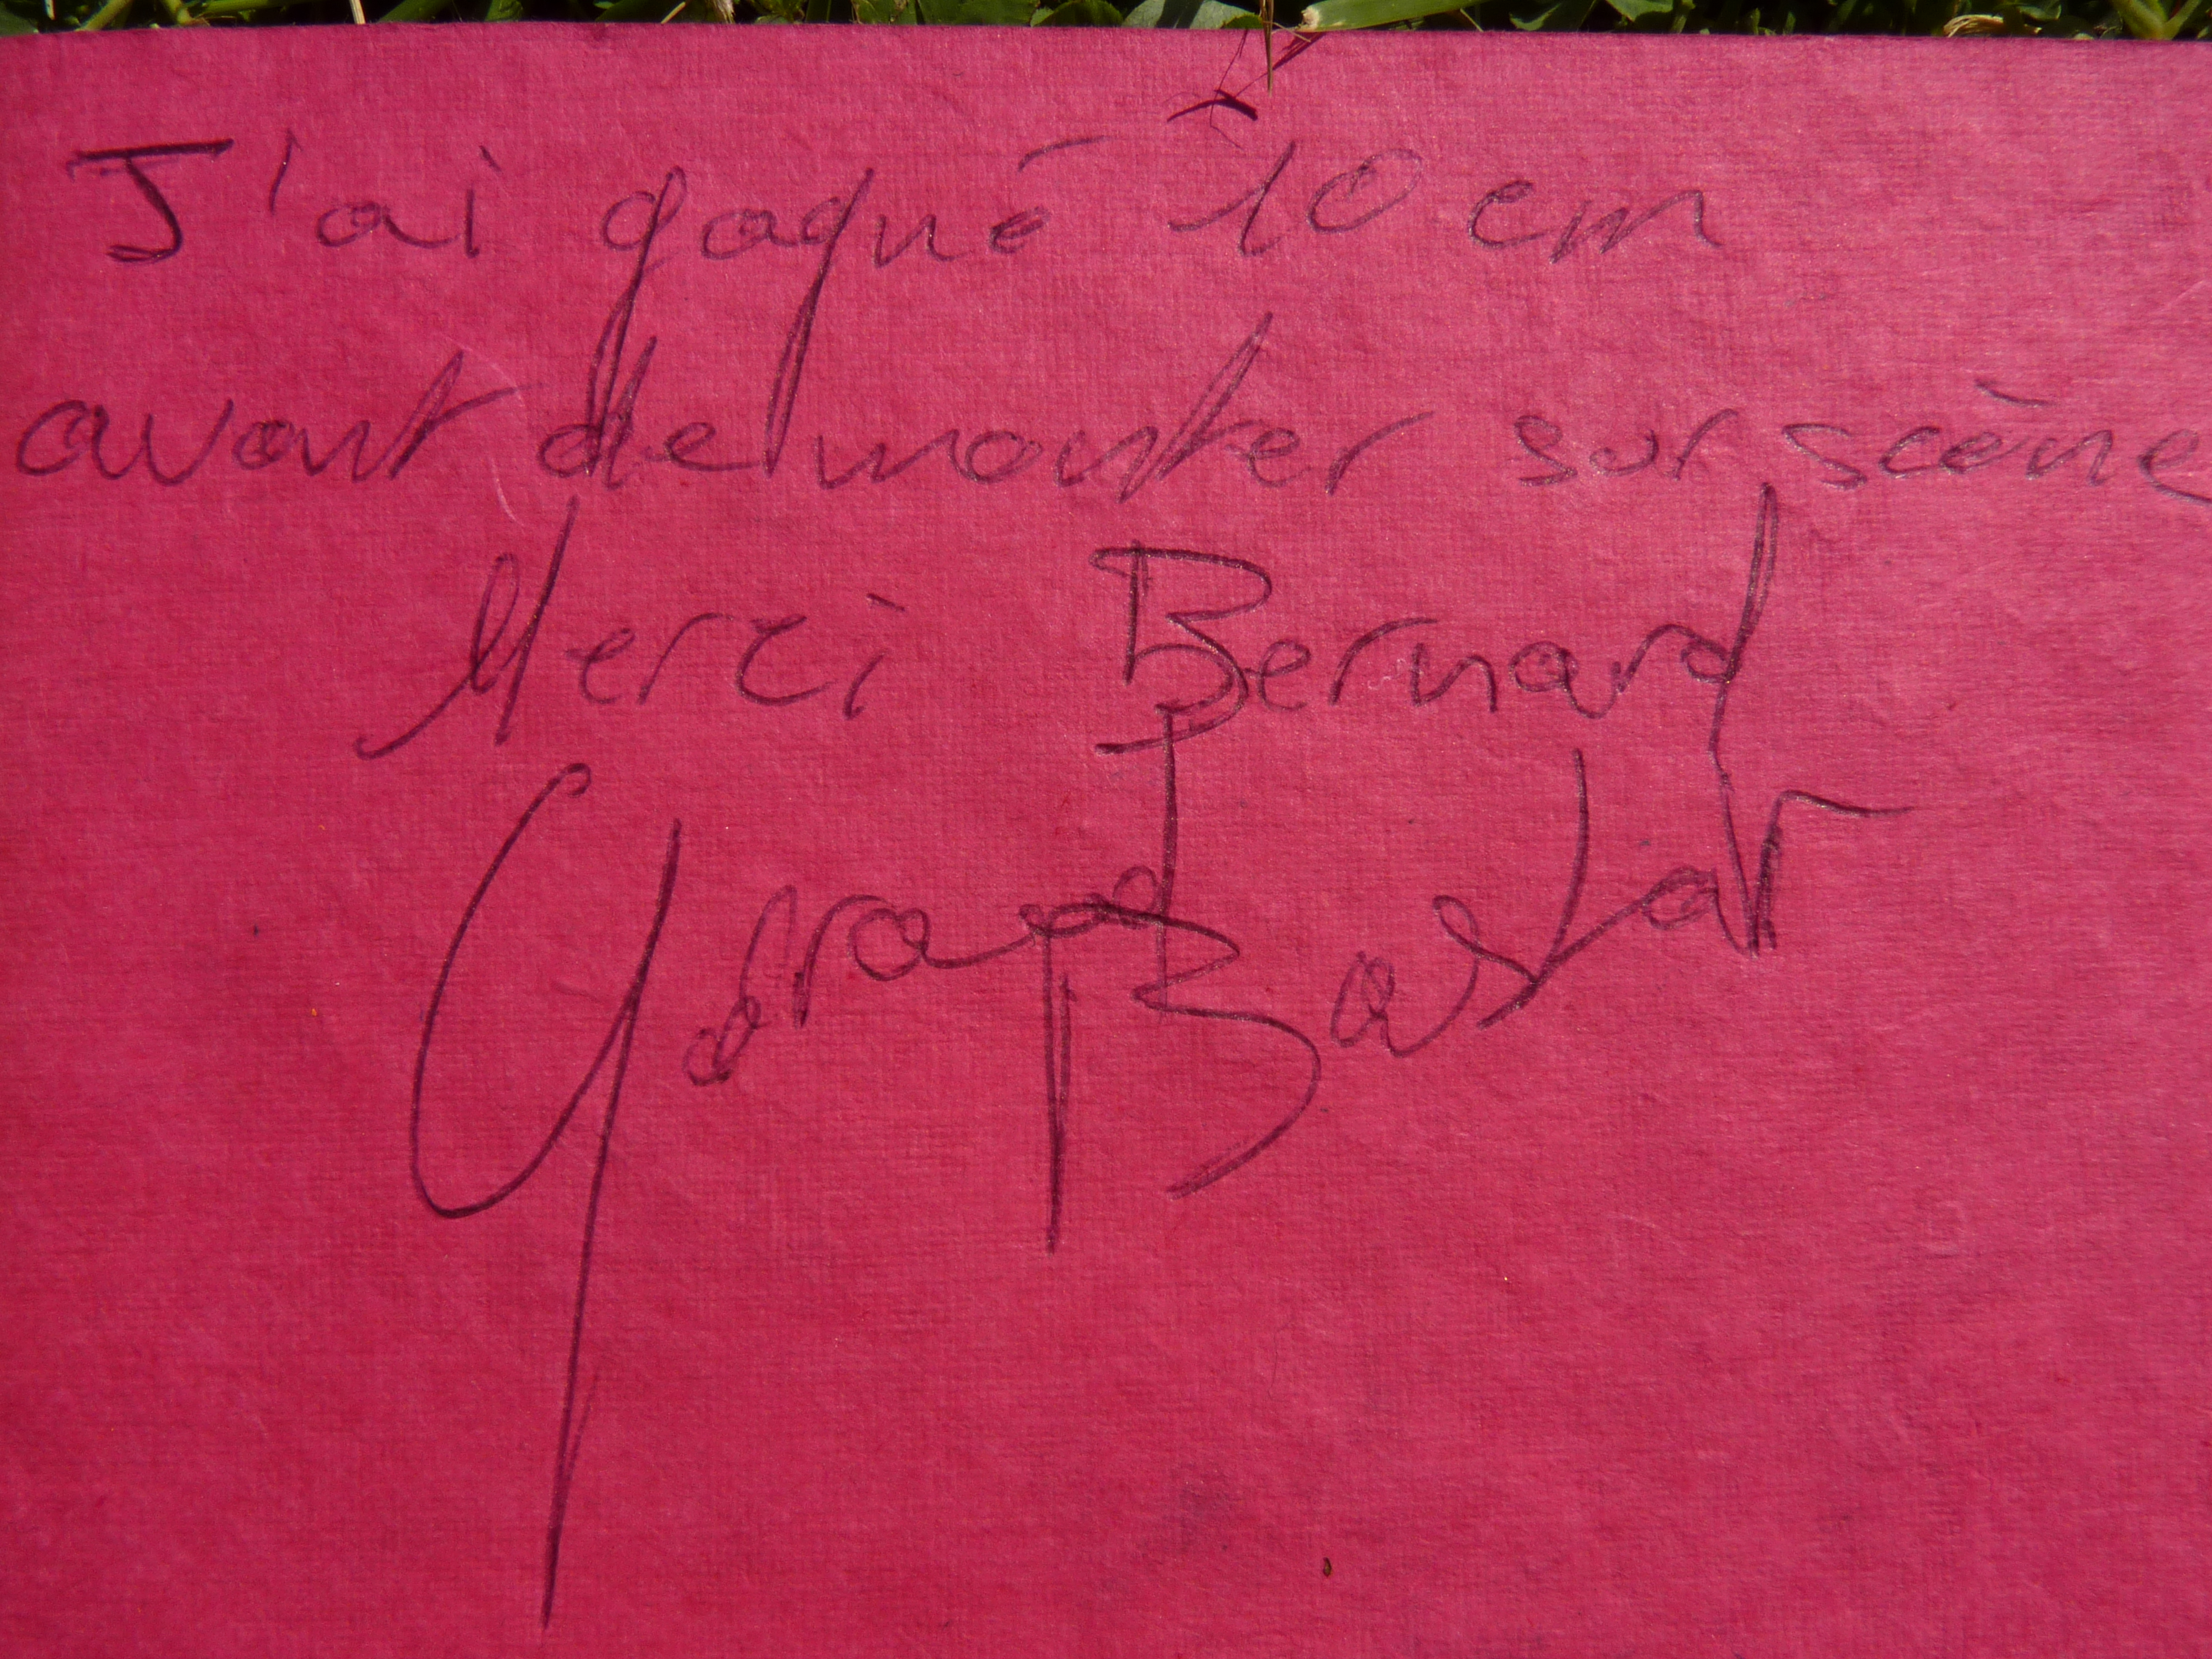 J'ai gagné 10 cm
avant de monter sur scène
Merci Bernard
Gérard Bastar